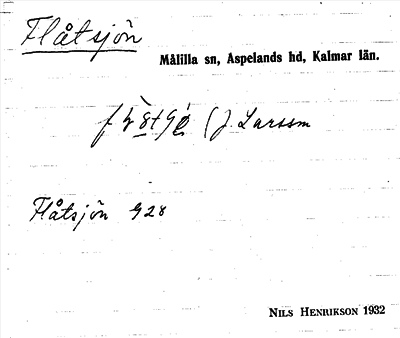 Flåtsjön
Målilla sn, Aspelands hd, Kalmar län.
(J. Larssm
Flåtsjön 928
NILS HENRIKSON 1932